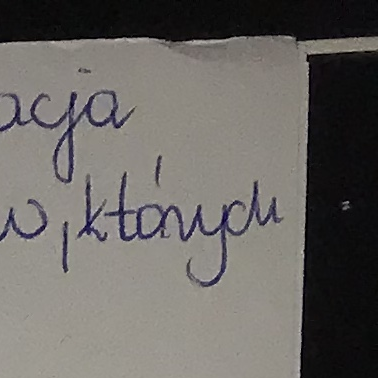 acja
w, których